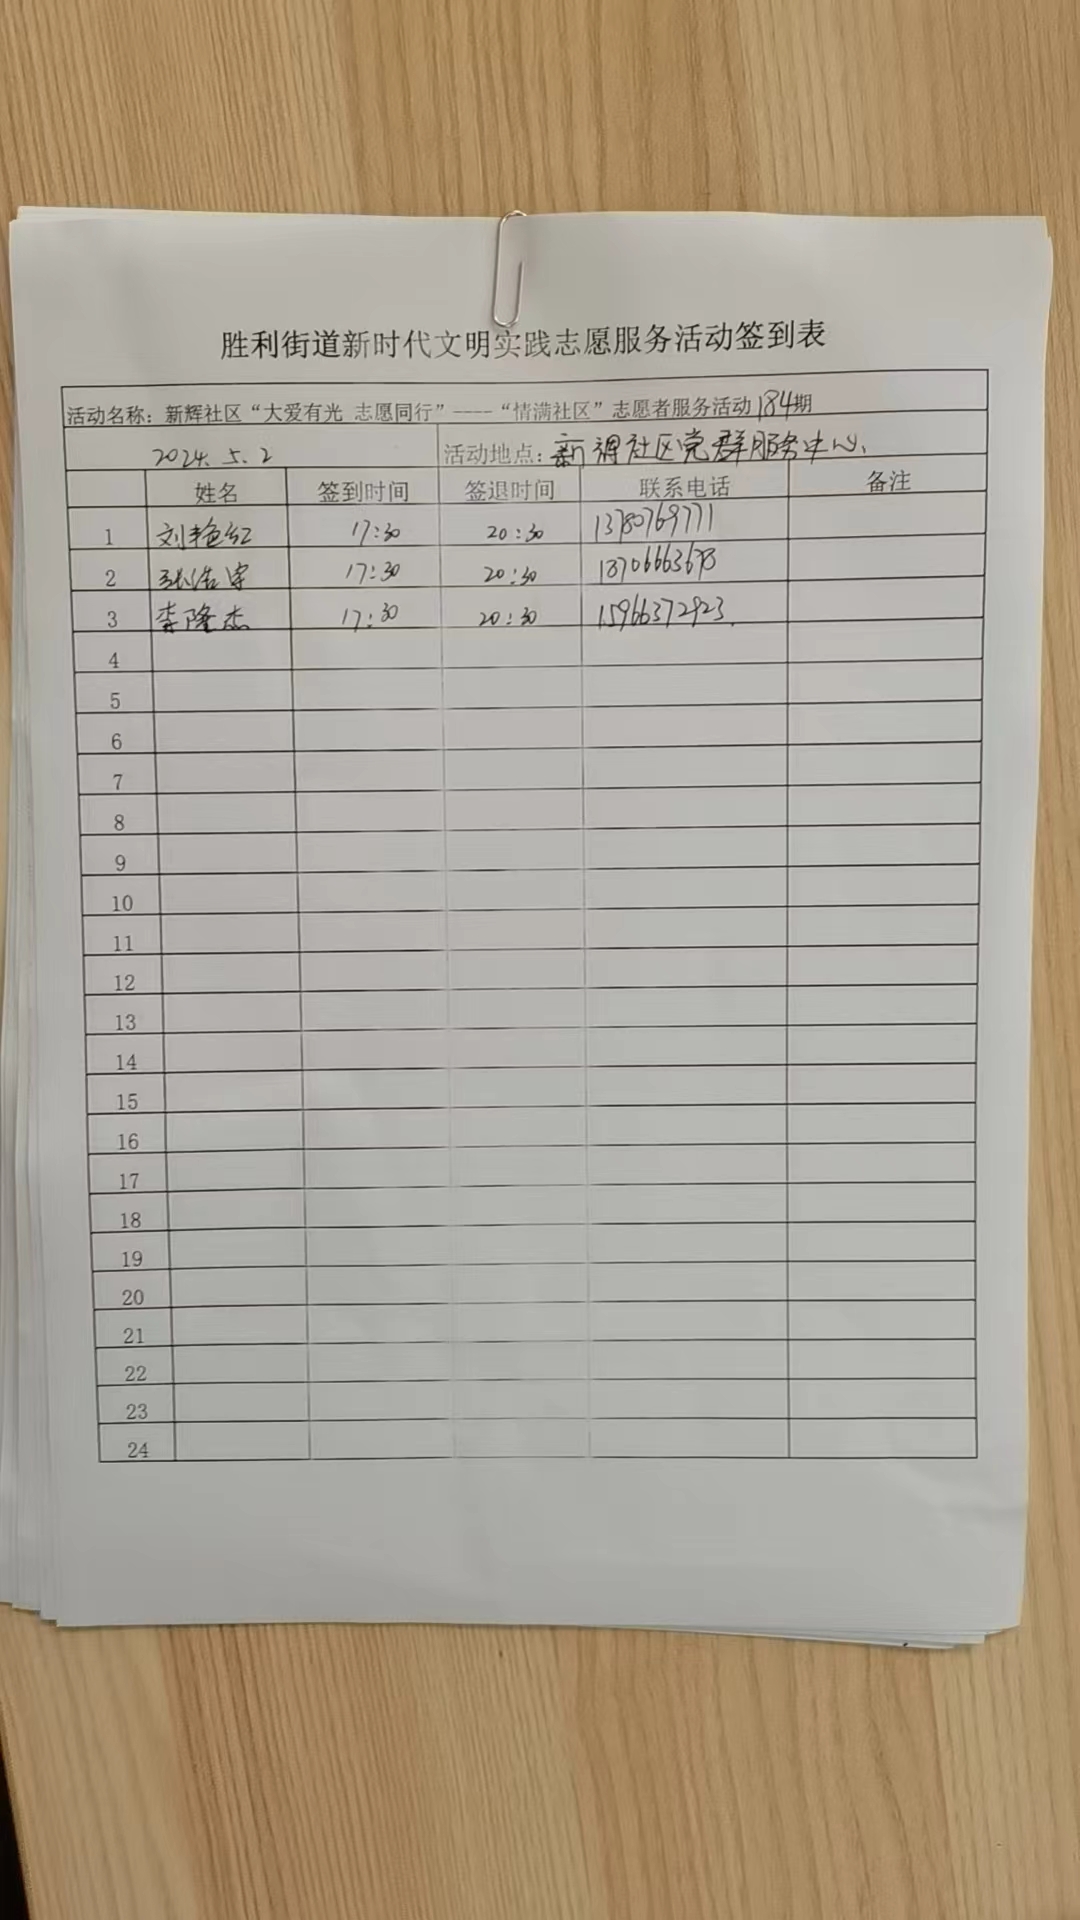 胜利街道新时代文明实践志愿服务活动签到表
活动名称：新辉社区“大爱有光 志愿同行”----“情满社区”志愿者服务活动184期
2024.5.2 活动地点：新辉社区党群服务中心.
姓名 签到时间 签退时间 联系电话 备注
1 刘艳红 17:30 20:30 13780769771
2 张浩宇 17:30 20:30
3 李隆杰 17:30 20:30 15966372923.
4
5
6
7
8
9
10
11
12
13
14
15
16
17
18
19
20
21
22
23
24